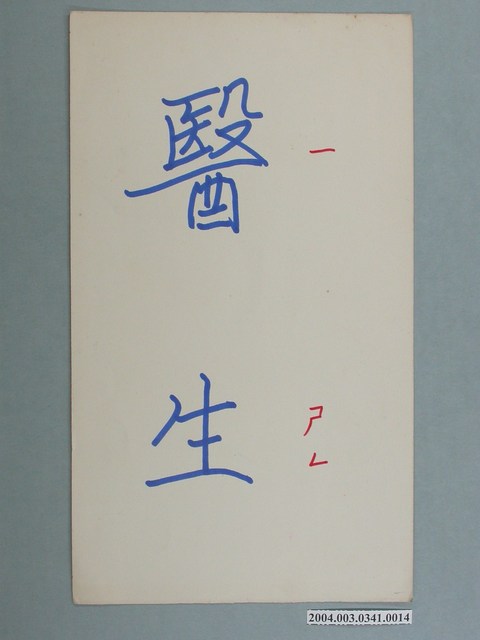 醫 ㄧ
生 ㄕㄥ
2004.003.0341.0014